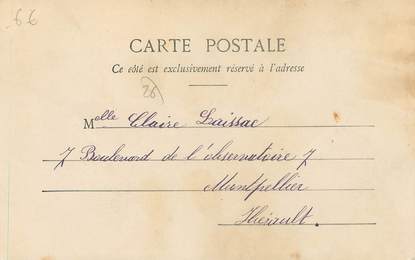 66
CARTE POSTALE
Ce côté est exclusivement réservé à l'adresse
26
Melle Claire Laissac
7 Boulevard de l'observatoire 7
Montpellier
Hérault.